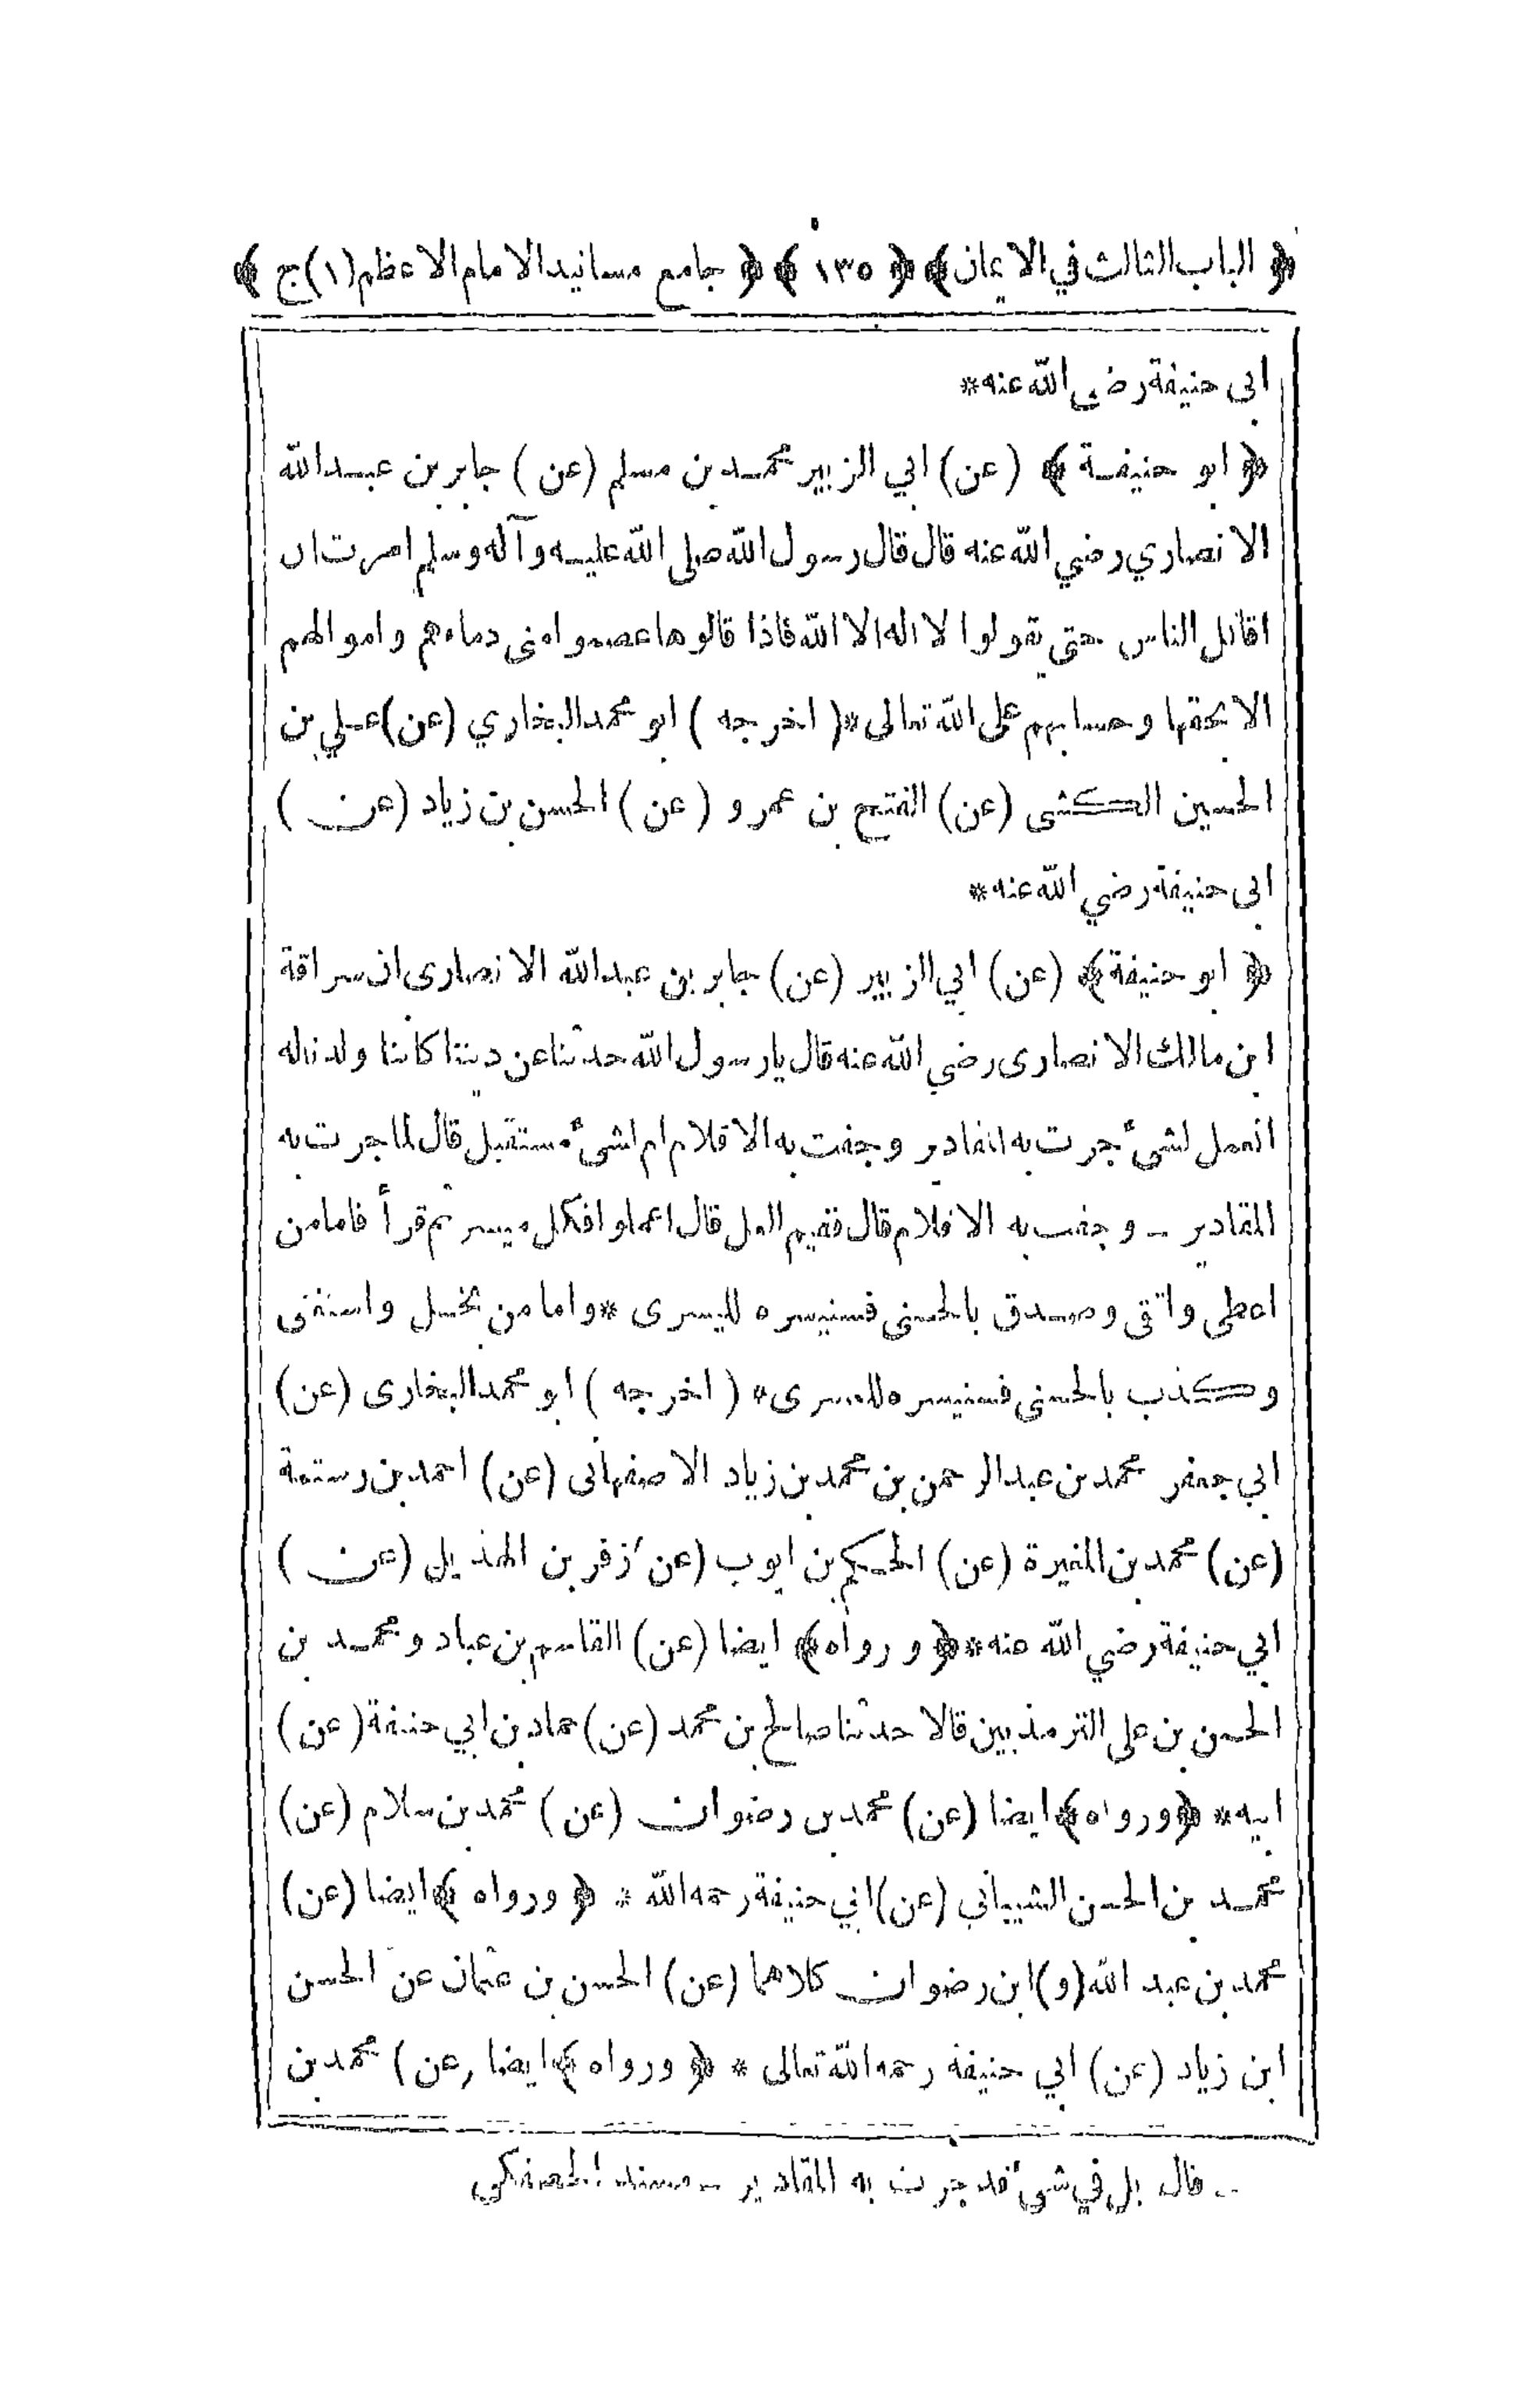 ﴿ الباب الثالث في الايمان ﴾ ﴿ ١٣٥ ﴾ ﴿ جامع مسانيد الامام الاعظم (١) ج ﴾
ابى حنيفة رضي الله عنه *
﴿ ابو حنيفة ﴾ (عن) ابي الزبير محمد بن مسلم (عن) جابر بن عبد الله
الانصاري رضي الله عنه قال قال رسول الله صلى الله عليه وآله وسلم امرت ان
اقاتل الناس حتى يقولوا لا اله الا الله فاذا قالوها عصموا منى دماءهم واموالهم
الا بحقها وحسابهم على الله تعالى * ( اخرجه ) ابو محمد البخاري (عن) علي بن
الحسين الكشى (عن) الفتح بن عمرو (عن) الحسن بن زياد (عن)
ابى حنيفة رضي الله عنه *
﴿ ابو حنيفة ﴾ (عن) ابي الزبير (عن) جابر بن عبد الله الانصارى ان سراقة
ابن مالك الانصارى رضي الله عنه قال يا رسول الله حدثنا عن ديننا كاننا ولدنا له
انعمل لشىٔ جرت به المقادير وجفت به الاقلام ام لشىٔ مستقبل قال لما جرت به
المقادير ـ وجفت به الاقلام قال ففيم العمل قال اعملوا فكل ميسر ثم قرأ فاما من
اعطى واتقى وصدق بالحسنى فسنيسره لليسرى * واما من بخل واستغنى
وكذب بالحسنى فسنيسره للعسرى * ( اخرجه ) ابو محمد البخارى (عن)
ابي جعفر محمد بن عبد الرحمن بن محمد بن زياد الاصفهانى (عن) احمد بن رستمة
(عن) محمد بن المغيرة (عن) الحكم بن ايوب (عن زفر بن الهذيل (عن)
ابي حنيفة رضي الله عنه * ﴿ ورواه ﴾ ايضا (عن) القاسم بن عباد ومحمد بن
الحسن بن على الترمذيين قالا حدثنا صالح بن محمد (عن) حماد بن ابي حنيفة (عن)
ابيه * ﴿ ورواه ﴾ ايضا (عن) محمد بن رضوان (عن) محمد بن سلام (عن)
محمد بن الحسن الشيباني (عن) ابي حنيفة رحمه الله * ﴿ ورواه ﴾ ايضا (عن)
محمد بن عبد الله (و) ابن رضوان كلاهما (عن) الحسن بن عثمان عن الحسن
ابن زياد (عن) ابي حنيفة رحمه الله تعالى * ﴿ ورواه ﴾ ايضا (عن) محمد بن
ـ قال بل في شىٔ قد جرت به المقادير ـ مسند الحصفكى